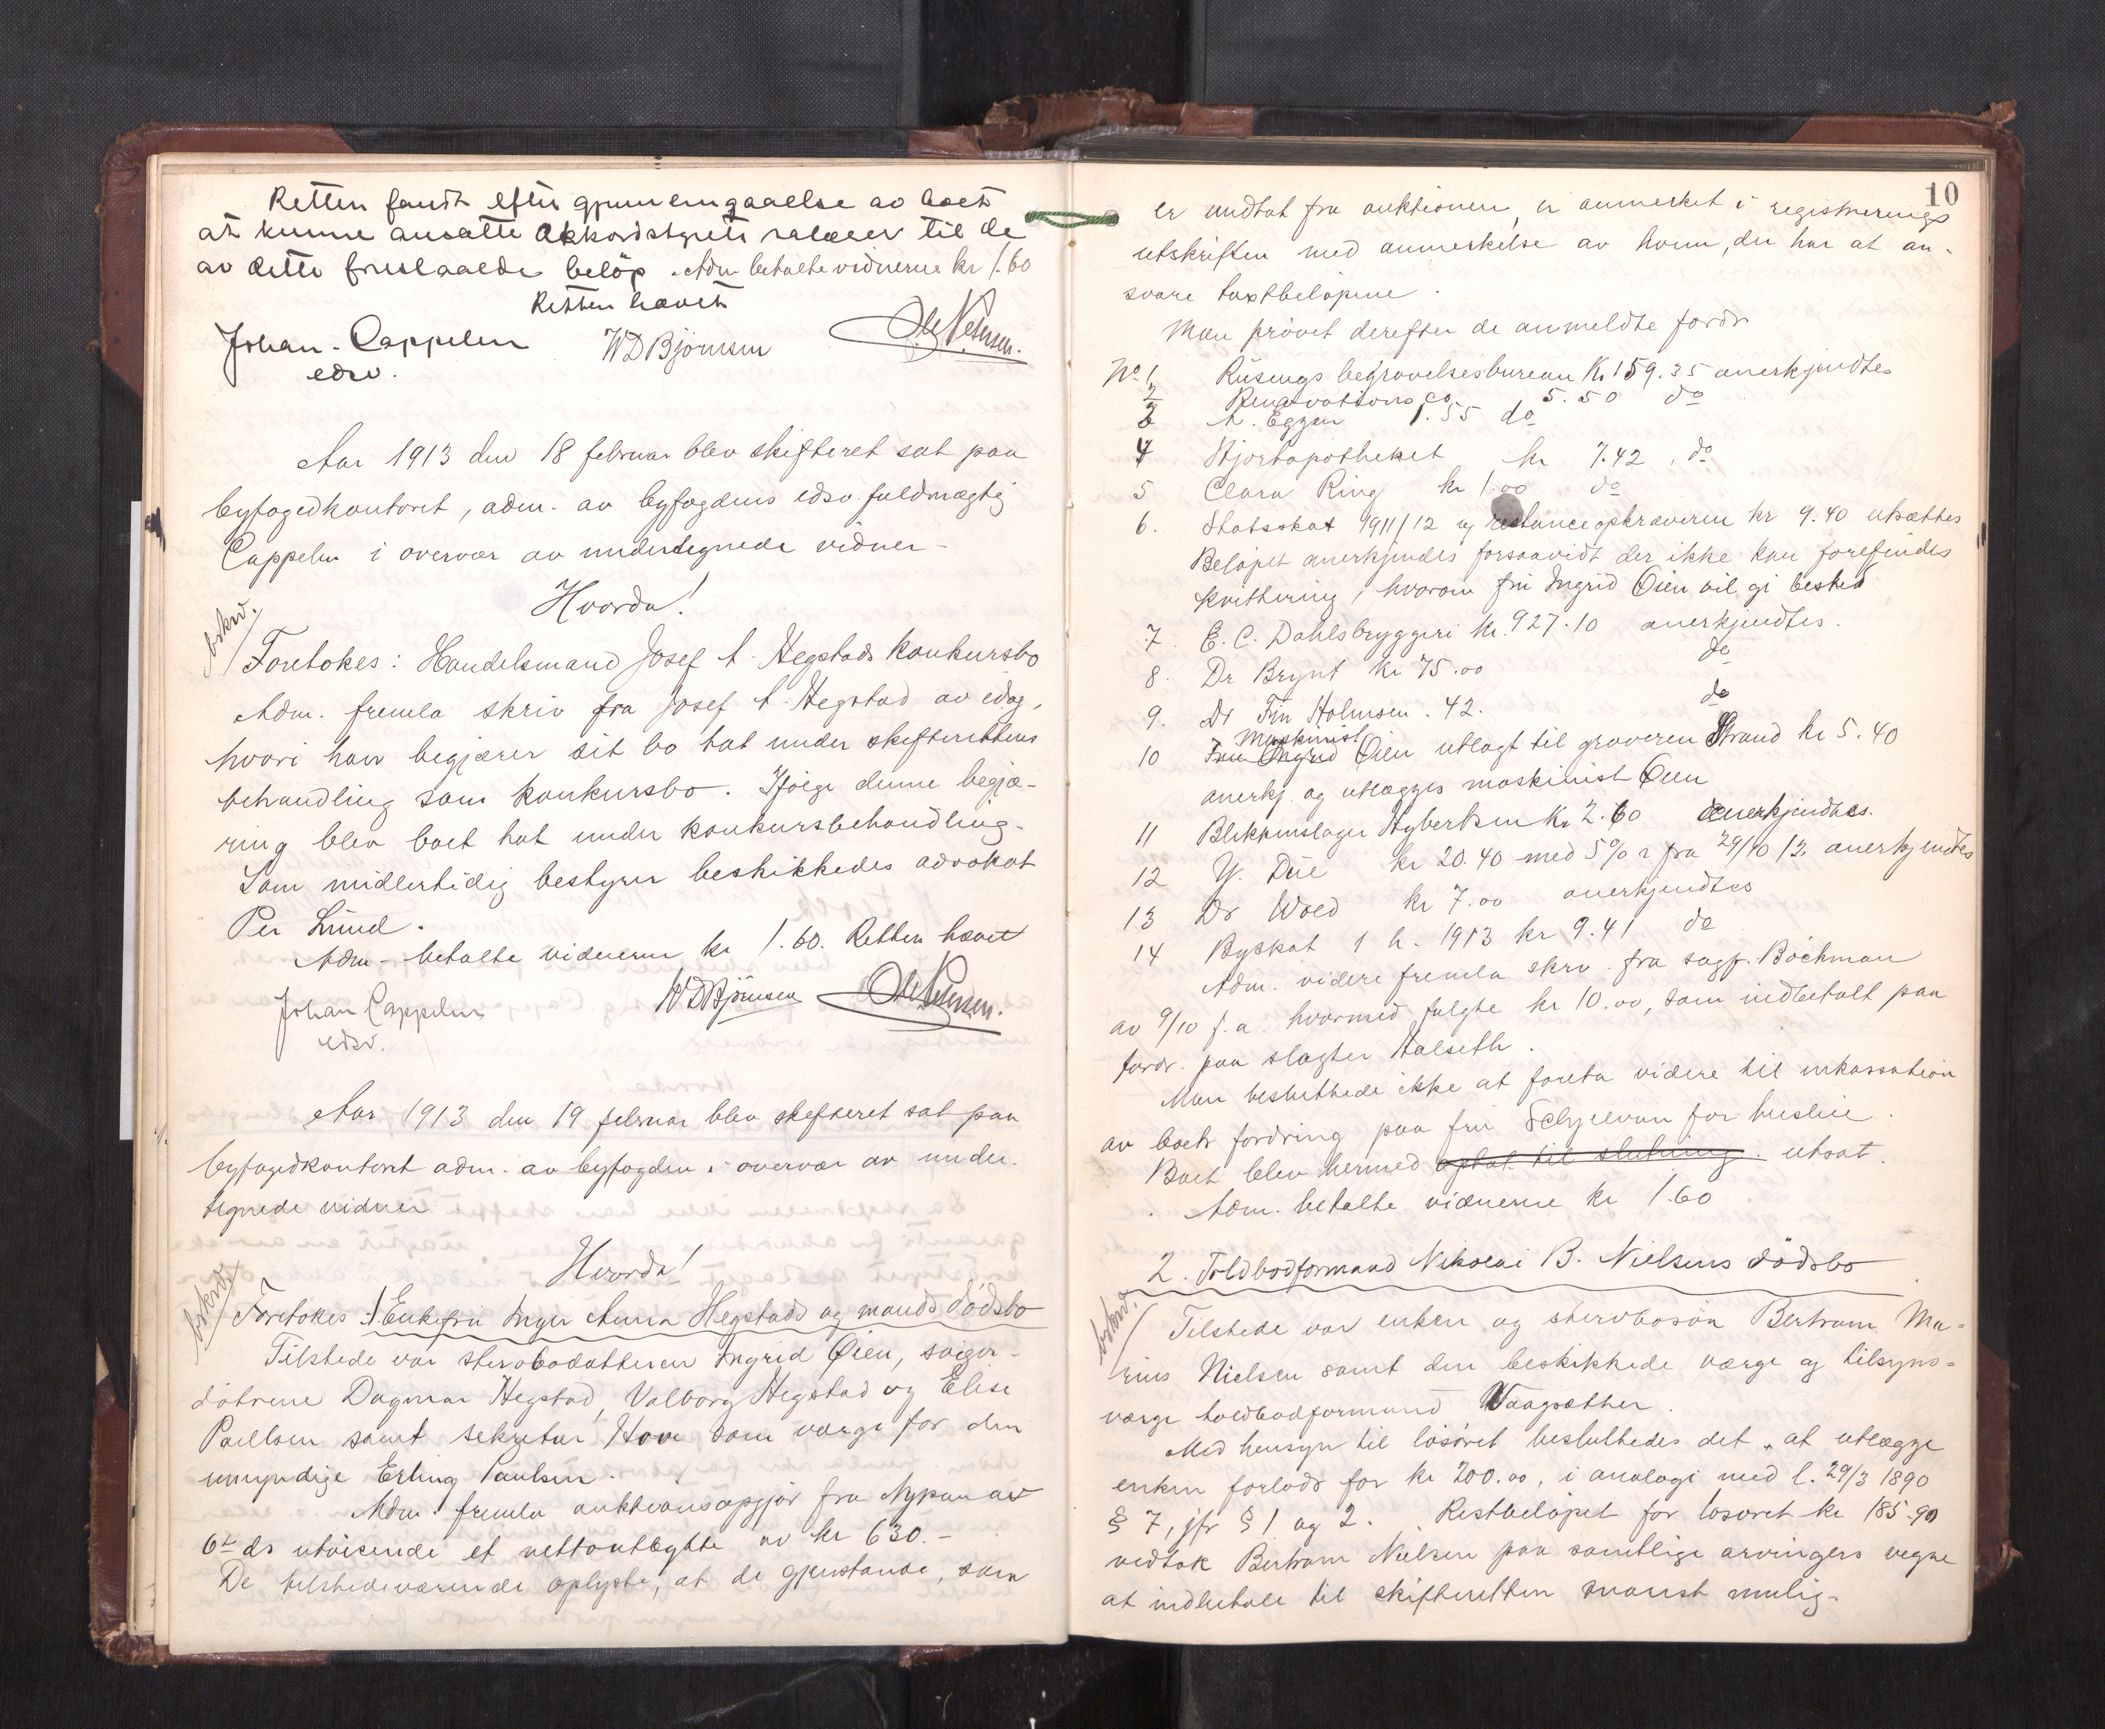 Retten fandt efter gjennemgaaelse av boets
at kunne ansætte Akkordstyrets salærer til de
av dette foreslaaede beløp. Adm betalte vidnerne kr 1.60
Retten hævet
Johan Cappelen WDBjörnsen Ole Petersen.
edsv.
Aar 1913 den 18 februar blev skifteret sat paa
byfogedkontoret, adm. av byfogdens edsv. fuldmægtig
Cappelen i overvær av undertegnede vidner -
Hvorda!
beskrv.
Foretokes: Handelsmand Josef A. Hegstads konkursbo
Adm. fremla skriv fra Josef A. Hegstad av idag,
hvori han begjærer sit bo tat under skifterettens
behandling som konkursbo. Ifølge denne begjæ-
ring blev boet tat under konkursbehandling.
Som midlertidig bestyrer beskikkedes advokat
Per Lund.
Adm. betalte vidnerne kr 1.60. Retten hævet
Johan Cappelen WDBjörnsen Ole Petersen.
edsv.
Aar 1913 den 19 februar blev skifteret sat paa
byfogedkontoret adm. av byfogden i overvær av under-
tegnede vidner
Hvorda!
beskrv.
Foretokes: 1. Enkefru Inger Anna Hegstads og mands dödsbo
Tilstede var stervbodatteren Ingrid Öien, sviger-
dötrene Dagmar Hegstad, Valborg Hegstad og Elise
Paulsen samt sekretær Hove som værge for den
umyndige Erling Paulsen.
Adm. fremla auktionsopgjör fra Nypan av
6te ds utvisende et nettoutbytte av kr 630.-
De tilstedeværende oplyste, at de gjenstande, som
10
er undtat fra auktionen, er anmerket i registrerings
utskriften med anmerkelse av hvem, der har at an-
svare taxtbelöpene.
Man prövet derefter de anmeldte fordr
No 1. Rüsings begravelsesbureau Kr 159.35 anerkjendtes
2 Renovations co. 5.50 do
3 A. Eggen 1.55 do
4 Hjortapotheket kr 7.42, do
5 Clara Ring kr 1.00 do
6. Statsskat 1911/12 og restanceopkræveren kr 9.40 utsættes
Belöpet anerkjendes forsaavidt der ikke kan forefindes
kvittering, hvorom fru Ingrid Öien vil gi besked
7 E. C. Dahlsbryggeri kr. 927.10 anerkjendtes.
8. Dr Brynt kr 75.00 do
9. Dr Fin Holmsen. 42. do
Maskinist
10 Fru Ingrid Öien utlagt til graveren Strand kr 5.40
anerkj. og utlægges maskinist Öien
11 Blikkenslager Hybertsen Kr 2.60 anerkjendtes.
12 Y. Due kr 20.40 med 5% r fra 29/10 12 anerkjendtes
13 Dr Wold kr 7.00 anerkjendtes
14 Byskat 1 h. 1913 kr 9.41 do
Adm. videre fremla skrv. fra sagf. Bachman
av 9/10 f.a. hvormed fulgte kr 10.00, som indbetalt paa
fordr. paa slagter Halseth.
Man besluttede ikke at foreta videre til inkassation
av boets fordring paa fru Schjelvan for husleie.
Boet blev hermed optat til slutning. utsat.
Adm. betalte vidnerne kr 1.60
2. Toldbodformand Nikolai B. Nielsens dödsbo
beskrv.
Tilstede var enken og stervbosön Bertram Ma-
rius Nielsen samt den beskikkede værge og tilsyns-
værge toldbodformand Vaagsæther.
Med hensyn til lösöret besluttedes det, at utlægge
enken forlods for kr 200.00, i analogi med l. 29/3 1890
§ 7, jfr § 1 og 2. Restbelöpet for lösöret kr 185.90
vedtok Bertram Nielsen paa samtlige arvingers vegne
at indbetale til skifteretten snarest mulig-